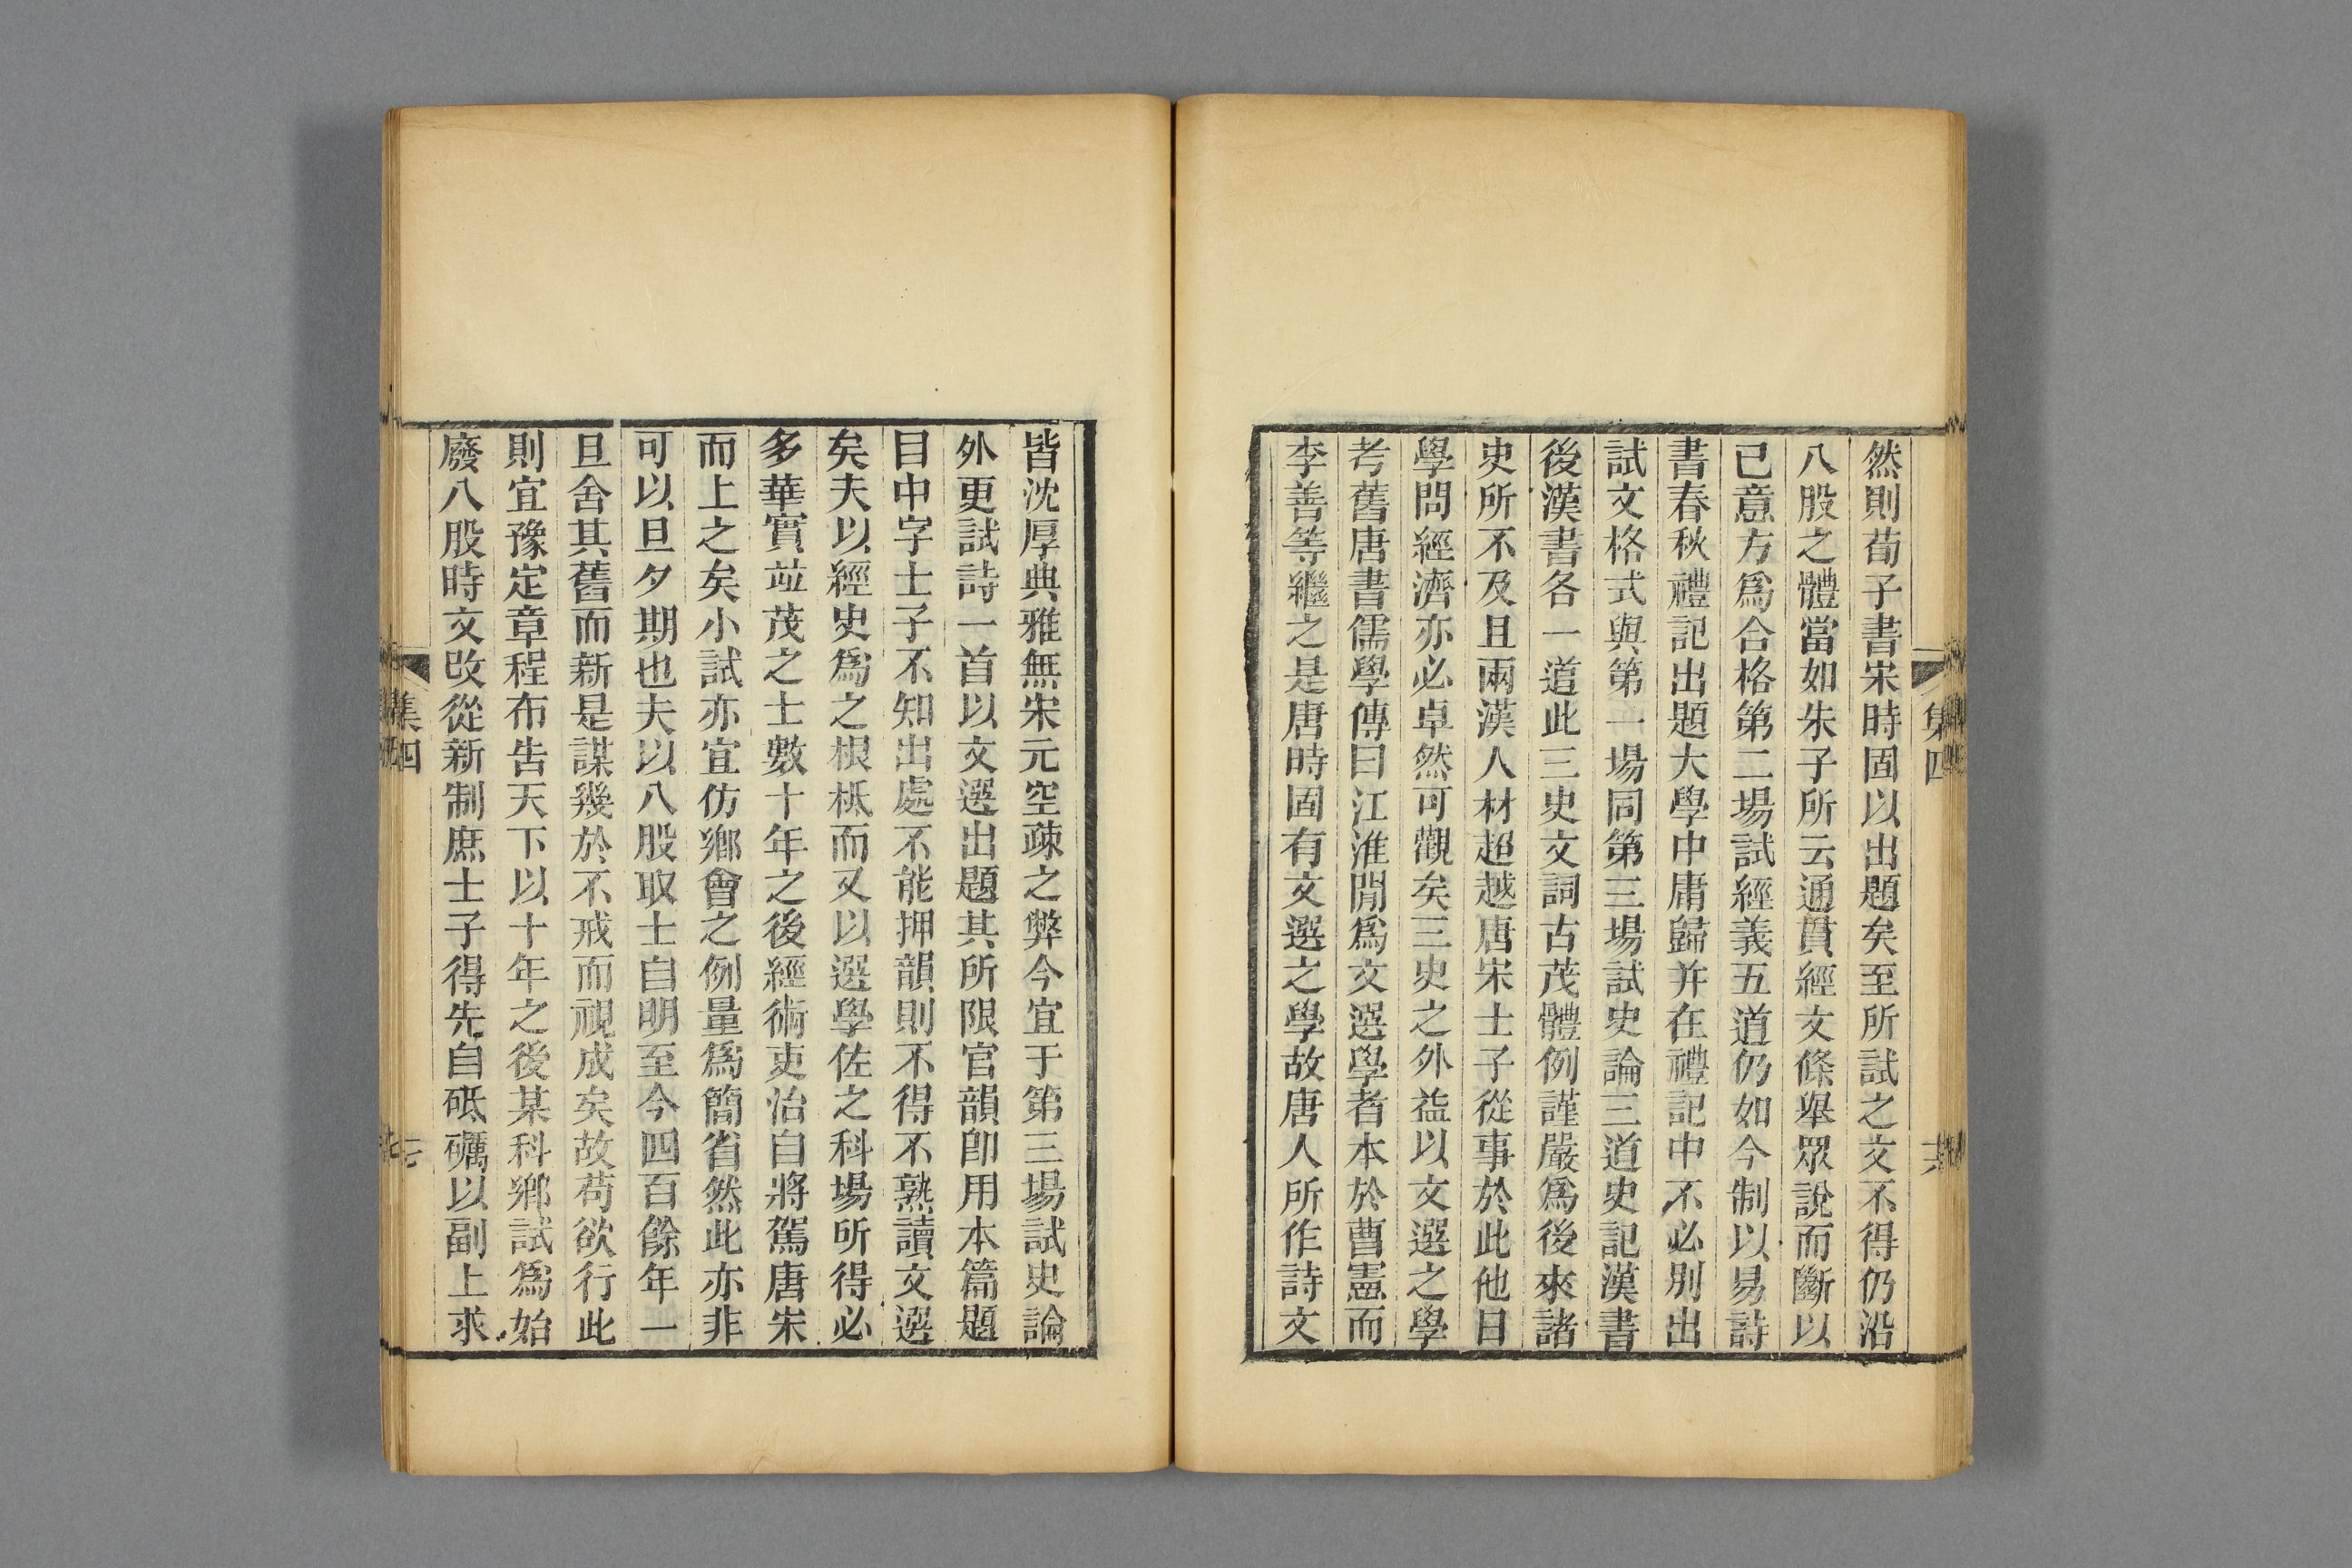 然則荀子書宋時固以出題矣至所試之文不得仍沿
八股之體當如朱子所云通貫經文條舉眾說而斷以
己意方爲合格第二場試經義五道仍如今制以易詩
書春秋禮記出題大學中庸歸并在禮記中不必別出
試文格式與第一場同第三場試史論三道史記漢書
後漢書各一道此三史文詞古茂體例謹嚴爲後來諸
史所不及且兩漢人材超越唐宋士子從事於此他日
學問經濟亦必卓然可觀矣三史之外益以文選之學
考舊唐書儒學傳曰江淮閒爲文選學者本於曹憲而
李善等繼之是唐時固有文選之學故唐人所作詩文
集四
皆沈厚典雅無宋元空疎之弊今宜于第三場試史論
外更試詩一首以文選出題其所限官韻卽用本篇題
目中字士子不知出處不能押韻則不得不熟讀文選
矣夫以經史爲之根柢而又以選學佐之科場所得必
多華實竝茂之士數十年之後經術吏治自將駕唐宋
而上之矣小試亦宜仿鄉會之例量爲簡省然此亦非
可以旦夕期也夫以八股取士自明至今四百餘年一
旦舍其舊而新是謀幾於不戒而視成矣故苟欲行此
則宜豫定章程布告天下以十年之後某科鄉試爲始
廢八股時文改從新制庶士子得先自砥礪以副上求
集四